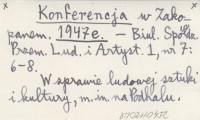 x x
Konferencja w Zako-
panem. 1947 r. – Biul. Spółdz.
Przem. Lud. i Artyst. 1, nr 7:
6-8.
W sprawie ludowej sztuki
i kultury, m.in. na Podhalu.